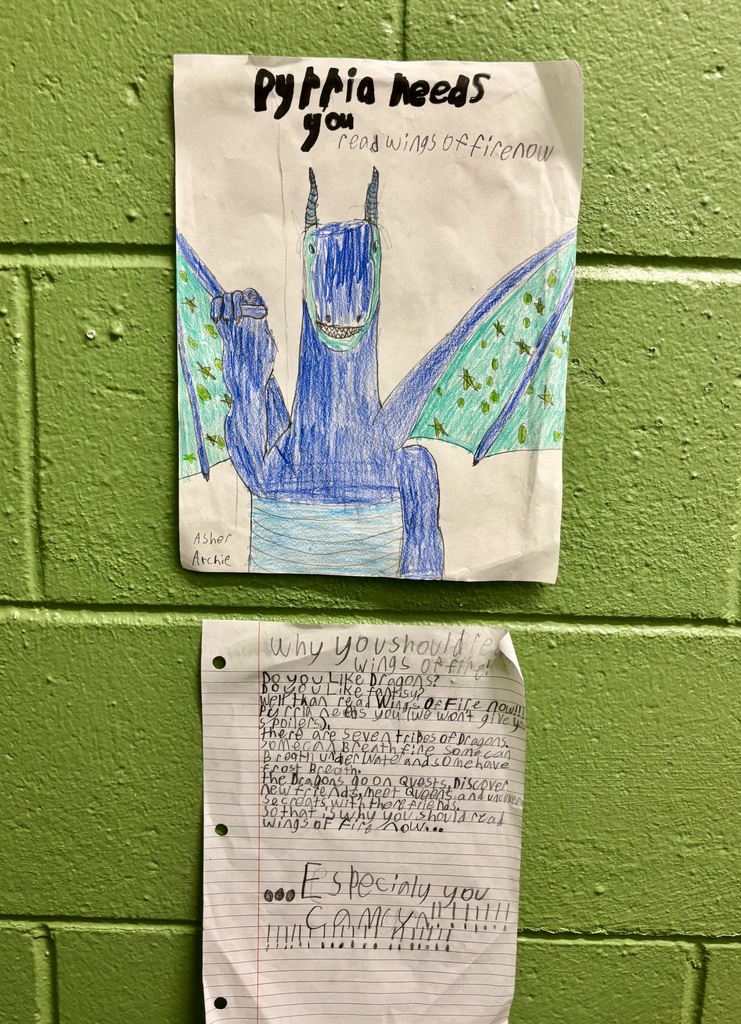 Pyrria needs
you
read wings of fire now
Asher
Archie
why you should re
wings of fire!
Do you Like Dragons?
Do you Like fantisy?
well than read Wings Of Fire now!!!
Pyrria needs you (we won't give you
spoilers).
there are seven tribes of Dragons.
some can Breath fire some can
Breath under water and some have
frost Breath.
the Dragons go on Quests, Discover
new friends, meet Queens and uncover
secreats with there friends.
So that is why you should read
wings of Fire now...
...Especinly you